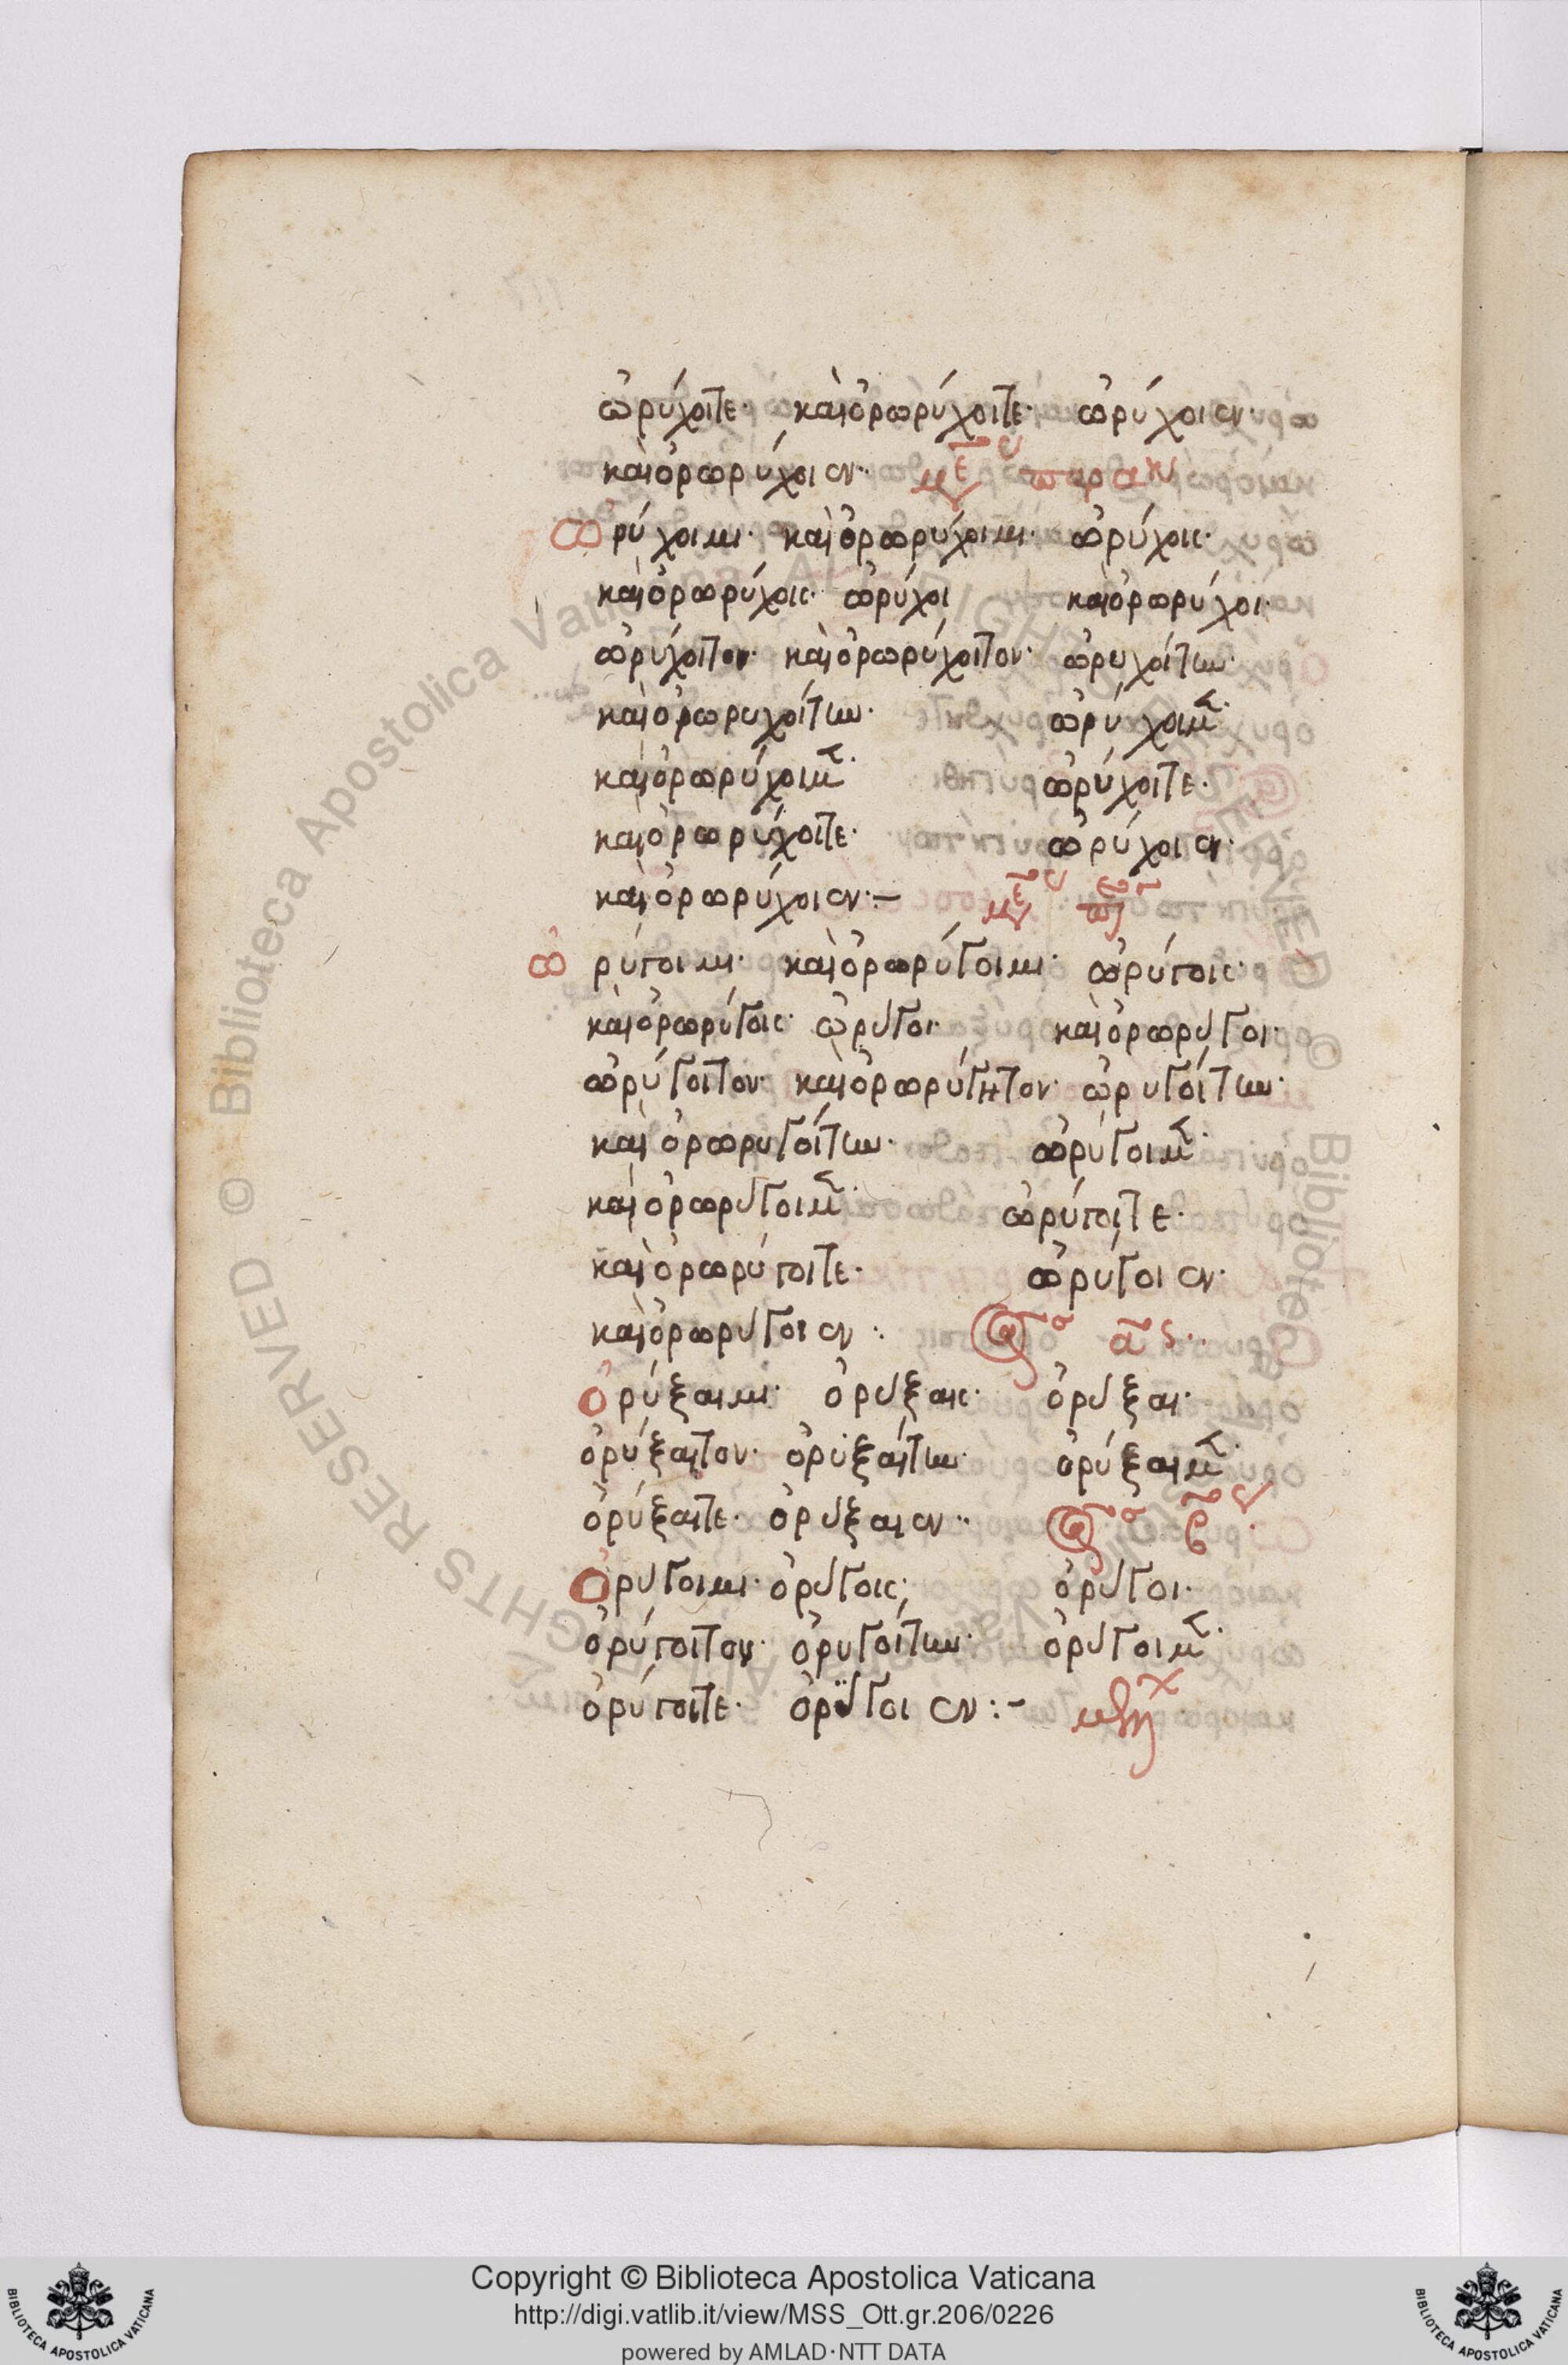 ὠρύχοιτε· καὶ ὀρωρύχοιτε· ὠρύχοιεν·
καὶ ὀρωρύχοιεν·
ὠρύχοιμι· καὶ ὀρωρύχοιμι· ὠρύχοις·
καὶ ὀρωρύχοις· ὠρύχοι καὶ ὀρωρύχοι·
ὠρύχοιτον· καὶ ὀρωρύχοιτον· ὠρυχοίτην·
καὶ ὀρωρυχοίτην· ὠρύχοιμεν·
καὶ ὀρωρύχοιμεν· ὠρύχοιτε·
καὶ ὀρωρύχοιτε· ὠρύχοιεν·
καὶ ὀρωρύχοιεν:—
ὠρύγοιμι· καὶ ὀρωρύγοιμι· ὠρύγοις·
καὶ ὀρωρύγοις· ὠρύγοι· καὶ ὀρωρύγοι·
ὠρύγοιτον· καὶ ὀρωρύγητον· ὠρυγοίτην·
καὶ ὀρωρυγοίτην· ὠρύγοιμεν·
καὶ ὀρωρύγοιμεν· ὠρύγοιτε·
καὶ ὀρωρύγοιτε· ὠρύγοιεν·
καὶ ὀρωρύγοιεν:
ὀρύξαιμι· ὀρύξαις· ὀρύξαι·
ὀρύξαιτον· ὀρυξαίτην· ὀρύξαιμεν·
ὀρύξαιτε· ὀρύξαιεν··
ὀρύγοιμι· ὀρύγοις· ὀρύγοι·
ὀρύγοιτον· ὀρυγοίτην· ὀρύγοιμεν·
ὀρύγοιτε· ὀρύγοιεν:-
Copyright © Biblioteca Apostolica Vaticana
http://digi.vatlib.it/view/MSS_Ott.gr.206/0226
powered by AMLAD·NTT DATA